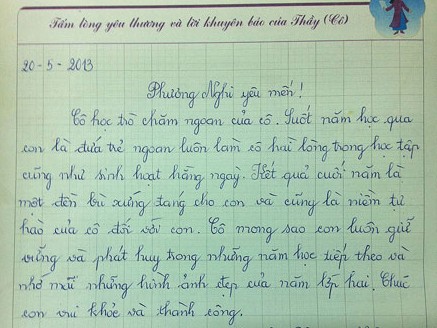 Tấm lòng yêu thương và lời khuyên bảo của Thầy (Cô)
20-5-2013
Phương Nghi yêu mến!
Cô học trò chăm ngoan của cô. Suốt năm học qua
con là đứa trẻ ngoan luôn làm cô hài lòng trong học tập
cũng như sinh hoạt hằng ngày. Kết quả cuối năm là
một đền bù xứng đáng cho con và cũng là niềm tự
hào của cô đối với con. Cô mong sao con luôn giữ
vững và phát huy trong những năm học tiếp theo và
nhớ mãi những hình ảnh đẹp của năm lớp hai. Chúc
con vui khỏe và thành công.